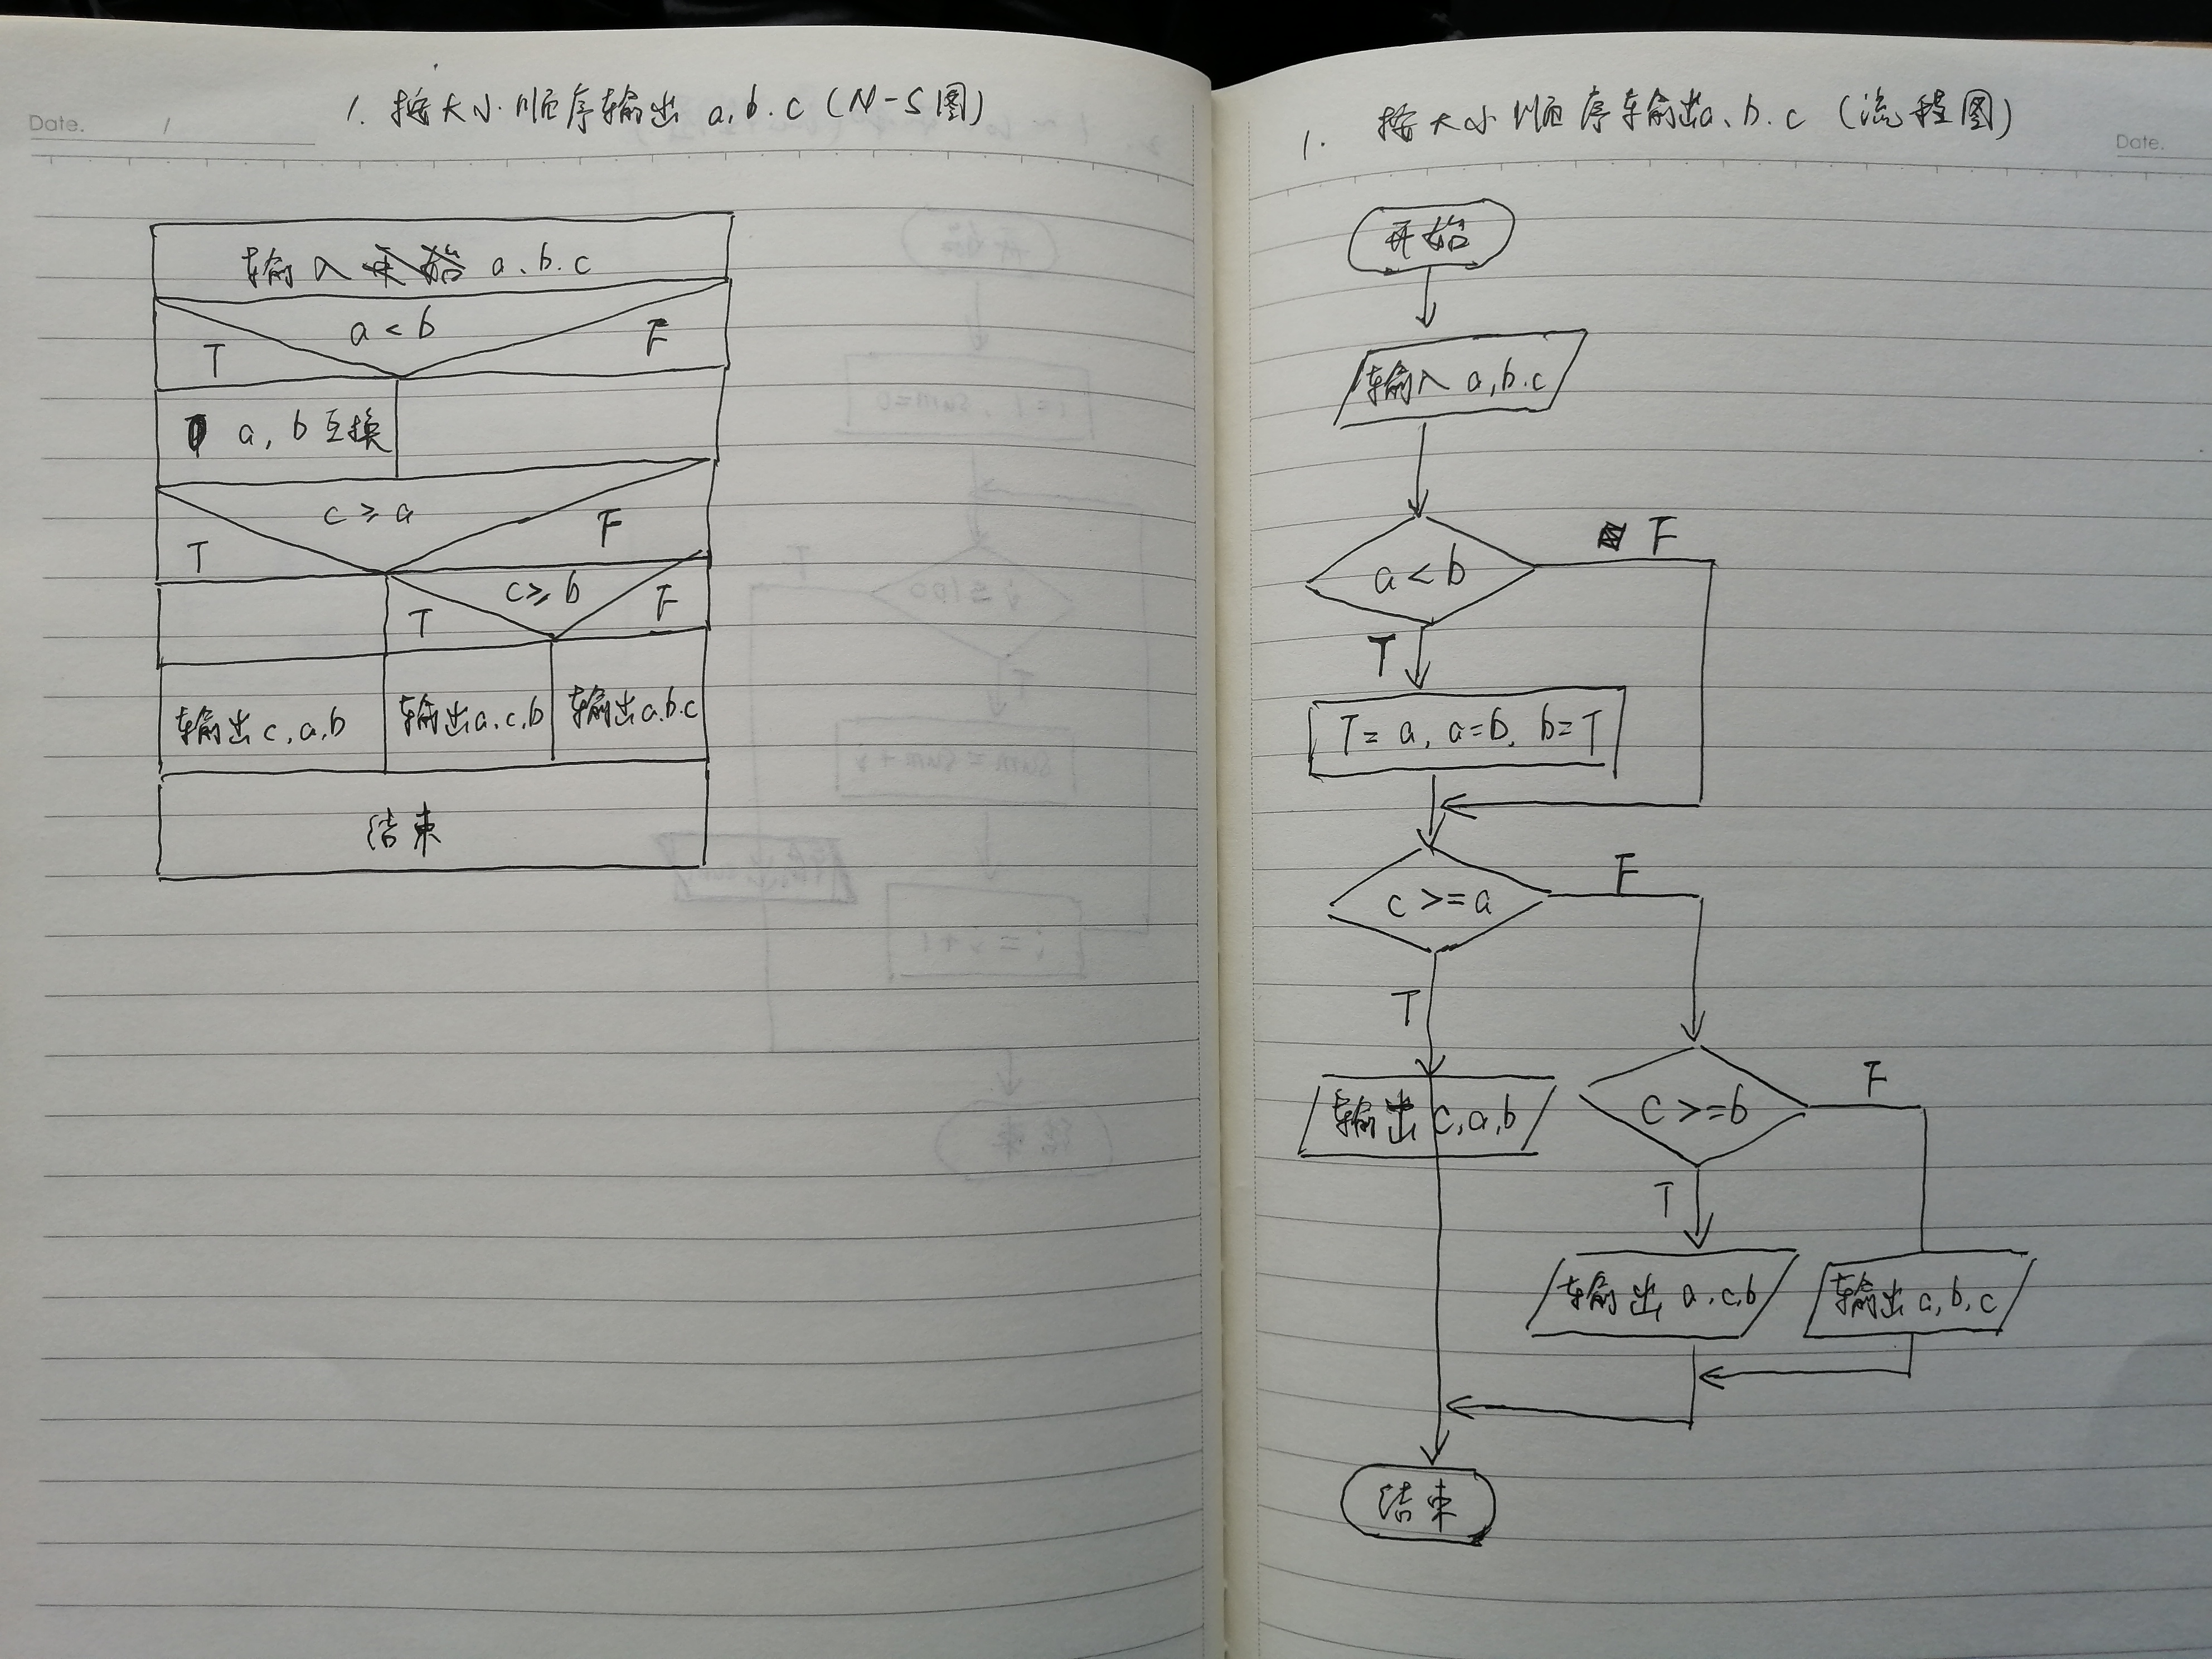 Date.
1
1. 按大小顺序输出 a, b. c (N-S图)
输入 a、b.c
a < b
T
F
a, b 互换
c ≥ a
T
F
c ≥ b
T
F
输出 c, a, b
输出 a. c. b
输出 a. b. c
结束
1. 按大小顺序输出a、b. c (流程图)
Date.
开始
输入 a, b. c
a < b
F
T
T = a, a=b, b=T
c >= a
F
T
输出 c, a, b
c >= b
F
T
输出 a. c, b
输出 a, b, c
结束